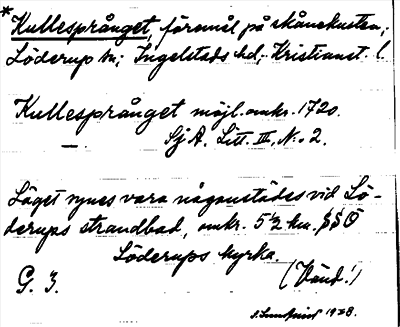 *Kullesprånget, föremål på skånekusten,
Löderup sn; Ingelstads hd; Kristianst. l.
Kullesprånget möjl. omkr. 1720.
— Sj A. Litt. III, N:o 2.
Läget synes vara någonstädes vid Lö-
derups strandbad, omkr. 5 1/2 km. SSÖ
Löderups kyrka
G. 3. (Vänd!)
1928.